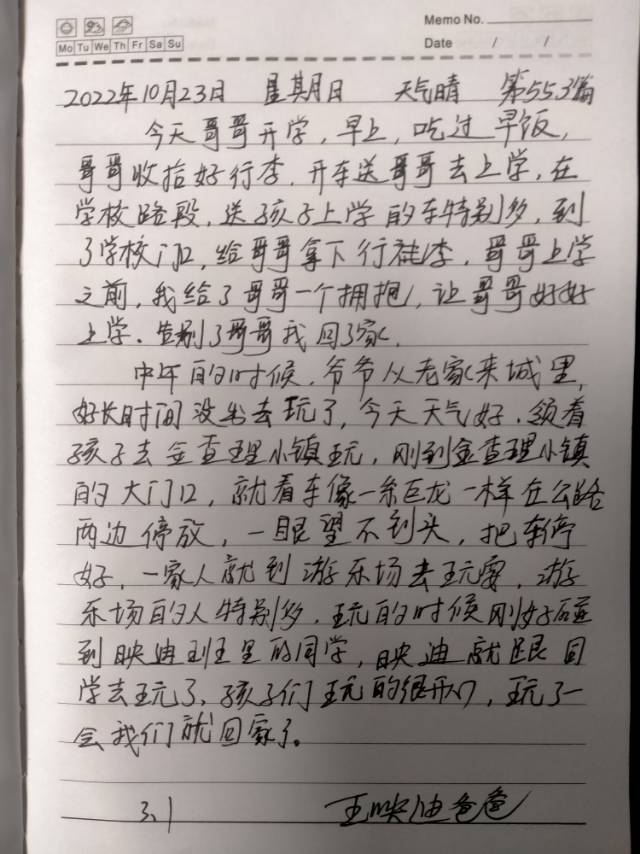 Memo No.
Mo Tu We Th Fr Sa Su
Date / /
2022年10月23日 星期日 天气晴 第553篇
今天哥哥开学，早上，吃过早饭，
哥哥收拾好行李，开车送哥哥去上学，在
学校路段，送孩子上学的车特别多，到
了学校门口，给哥哥拿下行李，哥哥上学
之前，我给了哥哥一个拥抱，让哥哥好好
上学．告别了哥哥我回了家．
中午的时候，爷爷从老家来城里，
好长时间没出去玩了，今天天气好．领着
孩子去金查理小镇玩，刚到金查理小镇
的大门口，就看车像一条巨龙一样在公路
两边停放，一眼望不到头，把车停
好，一家人就到游乐场去玩耍，游
乐场的人特别多．玩的时候刚好碰
到映迪班里的同学，映迪就跟同
学去玩了、孩子们玩的很开心，玩了一
会我们就回家了。
3.1 王映迪爸爸